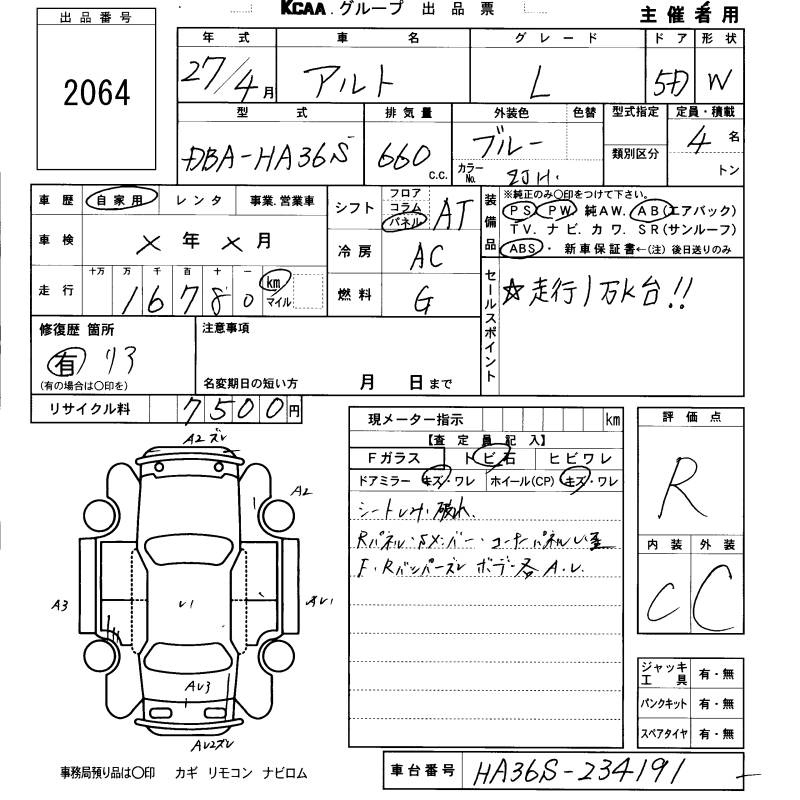 KCAA グループ 出品票
主催者用
出品番号
2064
年式 車名 グレード ドア 形状
27/4月 アルト L 5D W
型式 排気量 外装色 色替 型式指定 定員・積載
DBA-HA36S 660 c.c. ブルー 4名
カラーNo. ZJH. 類別区分 トン
車歴 自家用 レンタ 事業.営業車
シフト フロア コラム パネル AT
装備品 ※純正のみ○印をつけて下さい。
PS PW 純AW. AB(エアバック)
TV. ナビ. カワ. SR(サンルーフ)
ABS・ 新車保証書←(注) 後日送りのみ
車検 ×年×月
冷房 AC
走行 十万 万 千 百 十 一
16780 km マイル
燃料 G
セールスポイント ☆走行1万K台!!
修復歴 箇所 注意事項
有 リア
(有の場合は○印を) 名変期日の短い方 月 日まで
リサイクル料 7500円
現メーター指示 km
【査定員記入】
Fガラス トビ石 ヒビワレ
ドアミラー キズ・ワレ ホイール(CP) キズ・ワレ
破れ.
Rパネル・
F・Rバンパーズレ ボデー各A.U.
評価点
R
内装 外装
C C
A2ズレ
A2
A3
U1
AU1
AU3
AU2ズレ
ジャッキ工具 有・無
パンクキット 有・無
スペアタイヤ 有・無
事務局預り品は○印 カギ リモコン ナビロム
車台番号 HA36S-234191